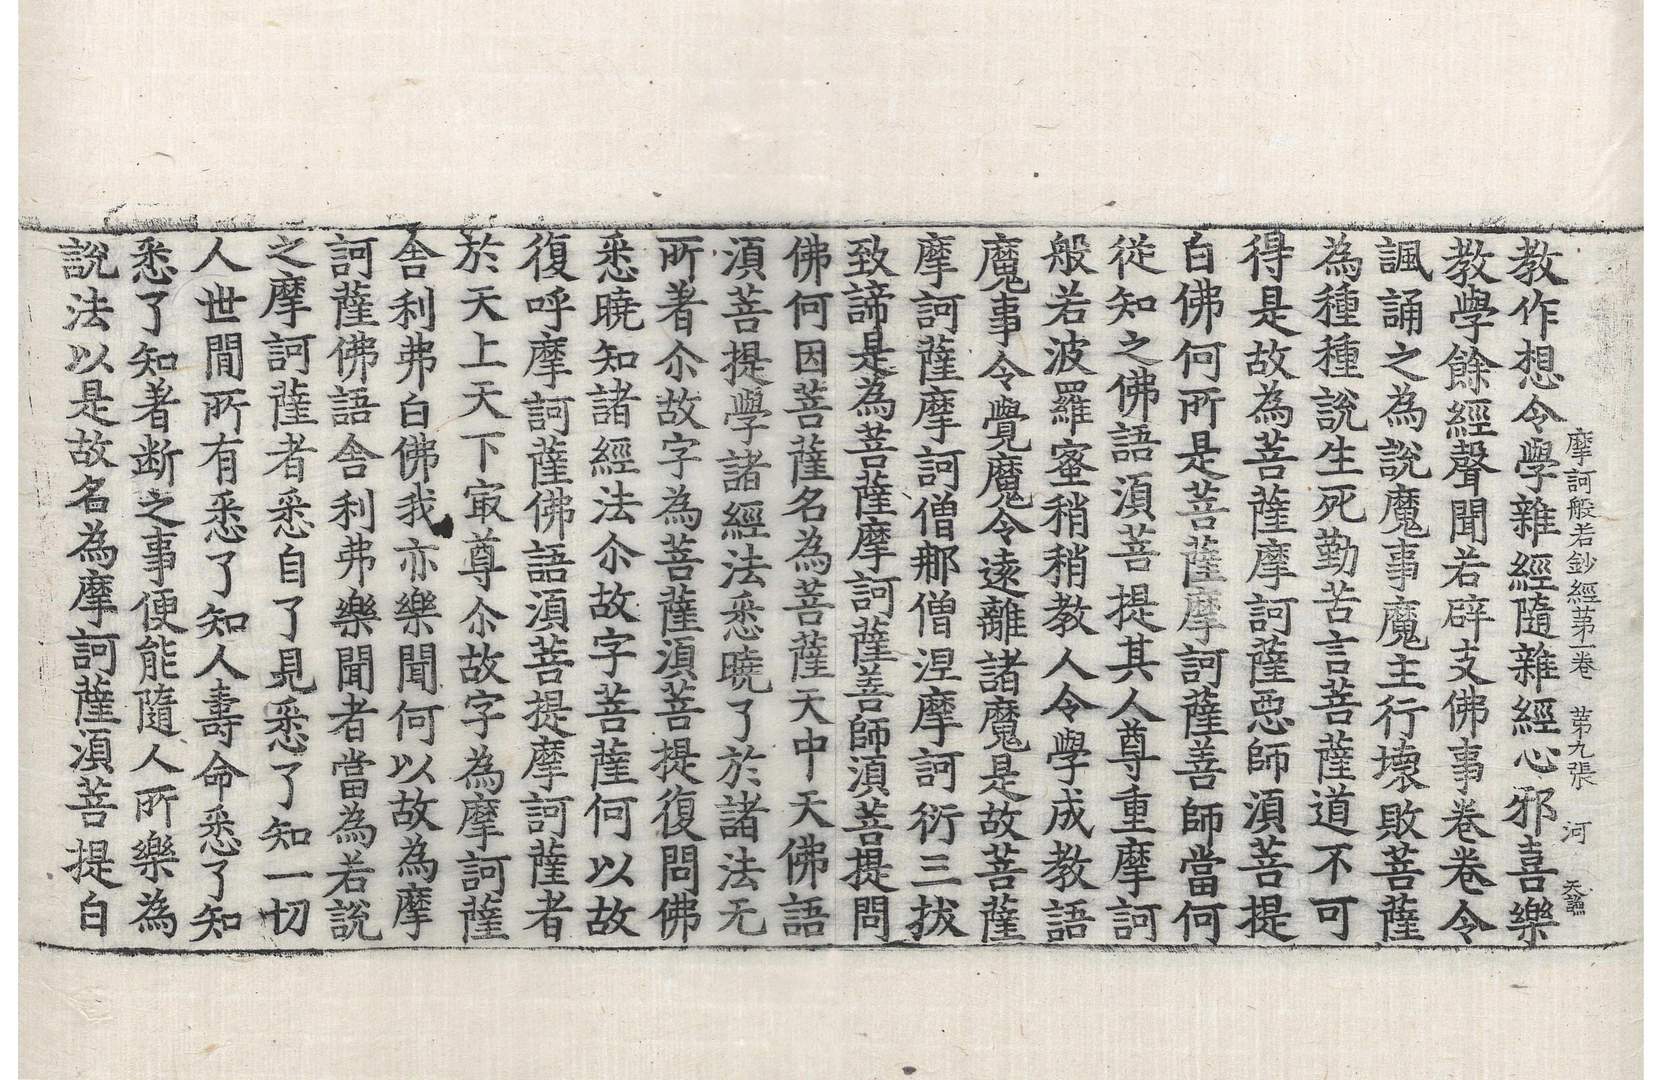 摩訶般若鈔經苐一卷 苐九張 河
教作想令學雜經隨雜經心邪喜樂
教學餘經聲聞若辟支佛事卷卷令
諷誦之為說魔事魔主行壞敗菩薩
為種種說生死勤苦言菩薩道不可
得是故為菩薩摩訶薩惡師湏菩提
白佛何所是菩薩摩訶薩善師當何
從知之佛語湏菩提其人尊重摩訶
般若波羅蜜稍稍教人令學成教語
魔事令覺魔令遠離諸魔是故菩薩
摩訶薩摩訶僧那僧涅摩訶衍三拔
致諦是為菩薩摩訶薩善師湏菩提問
佛何因菩薩名為菩薩天中天佛語
湏菩提學諸經法悉曉了於諸法无
所著尒故字為菩薩湏菩提復問佛
悉曉知諸經法尒故字菩薩何以故
復呼摩訶薩佛語湏菩提摩訶薩者
於天上天下㝡尊尒故字為摩訶薩
舍利弗白佛我亦樂聞何以故為摩
訶薩佛語舍利弗樂聞者當為若說
之摩訶薩者悉自了見悉了知一切
人世間所有悉了知人壽命悉了知
悉了知著断之事便能隨人所樂為
說法以是故名為摩訶薩湏菩提白